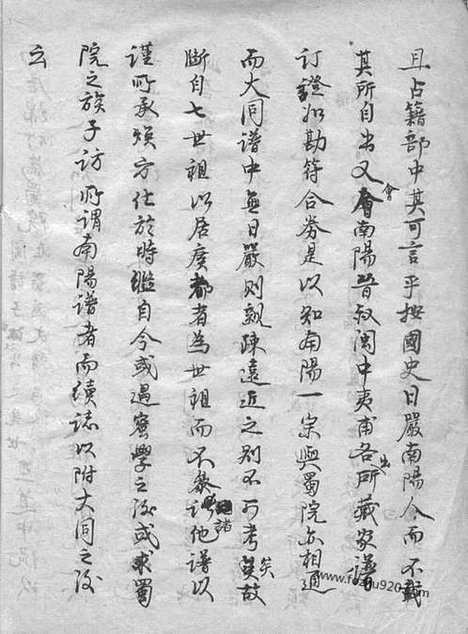 且占籍部中其可言乎按國史日嚴南陽人而不載
其所自出又會南陽晉叔閩中夷甫各出所藏家譜
訂證如勘符合券是以知南陽一宗與蜀院亦相通
而大同譜中無日嚴則親疎遠近之別不可考矣故
斷自七世祖以居廣都者為世祖而不參諸他譜以
謹所承煥方仕於時繼自今或過密學之後或求蜀
院之族子訪所謂南陽譜者而續誌以附大同之後
云